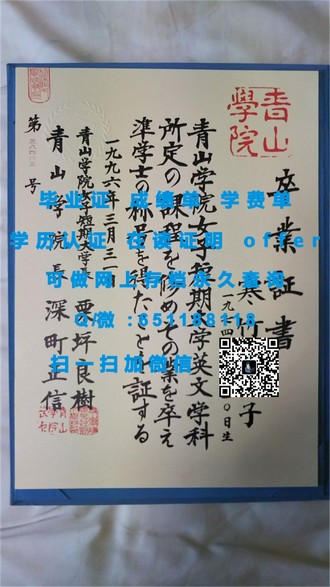 青山
學院
卒業証書
子
日生
青山学院女子短期大学英文学科
所定の課程を修めその業を卒え
準学士の称号を得たことを証する
一九九六年三月三一日
青山学院女子短期大学長 栗坪良樹
青山学院長 深町正信
第 号
毕业证 成绩单 学费单
学历认证 在读证明 offer
可做网上存档永久查询
Q/微:
扫一扫加微信